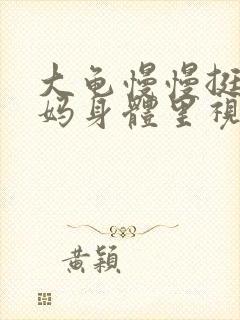 大龟慢慢挺
妈身體里視
黄穎